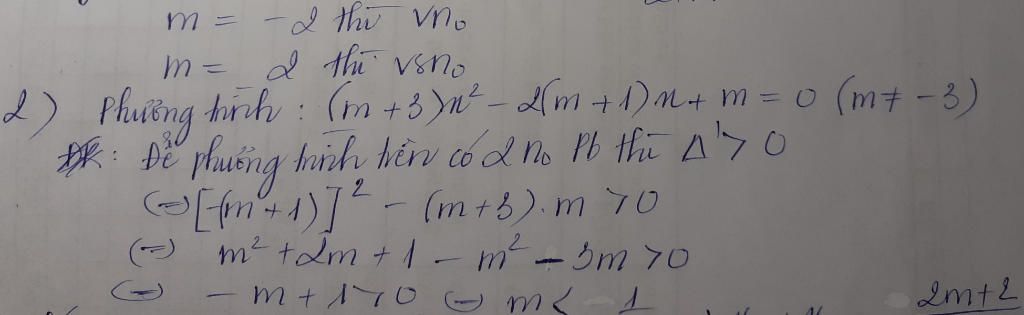 m = -2 thì vn₀
m = 2 thì vsn₀
2) Phương trình : (m + 3)x² - 2(m + 1)x + m = 0 (m ≠ -3)
: Để phương trình trên có 2 n₀ Pb thì Δ' > 0
(=) [-(m + 1)]² - (m + 3) . m > 0
(=) m² + 2m + 1 - m² - 3m > 0
(=) - m + 1 > 0 (=) m < 1
2m + 2